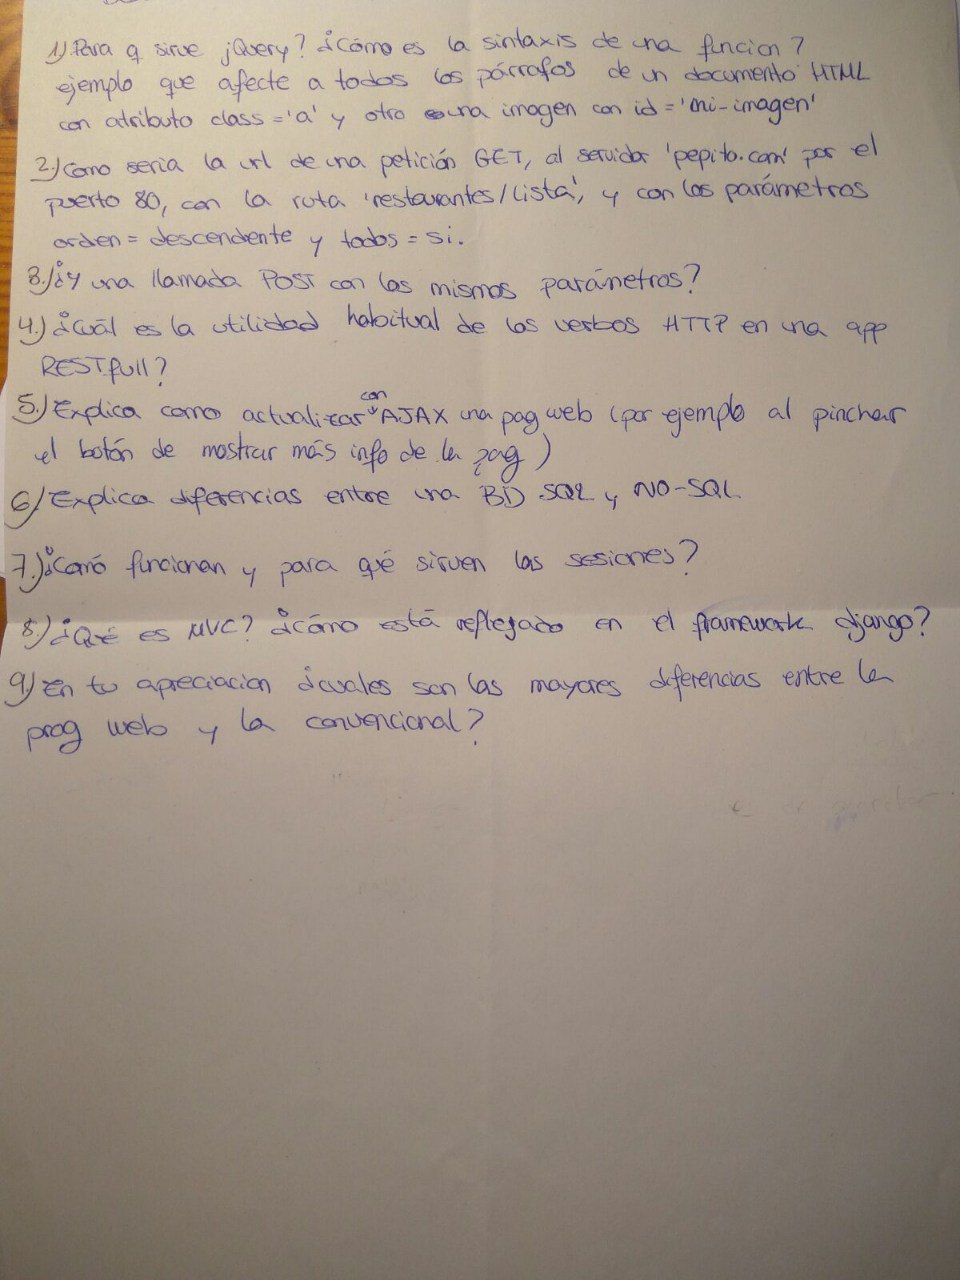 1) Para q sirve jQuery? ¿Cómo es la sintaxis de una funcion?
ejemplo que afecte a todos los párrafos de un documento HTML
con atributo class='a' y otro a una imagen con id='mi-imagen'
2.) Como seria la url de una petición GET, al servidor 'pepito.com' por el
puerto 80, con la ruta 'restaurantes/lista', y con los parámetros
orden = descendente y todos = si.
3.) ¿Y una llamada POST con los mismos parámetros?
4.) ¿Cuál es la utilidad habitual de los verbos HTTP en una app
RESTfull?
5.) Explica como actualizar con AJAX una pag web (por ejemplo al pinchar
el botón de mostrar más info de la pag)
6) Explica diferencias entre una BD SQL y NO-SQL
7.) ¿Comó funcionan y para qué sirven las sesiones?
8.) ¿Qué es MVC? ¿cómo está reflejado en el framework django?
9) En tu apreciacion ¿cuales son las mayores diferencias entre la
prog web y la convencional?